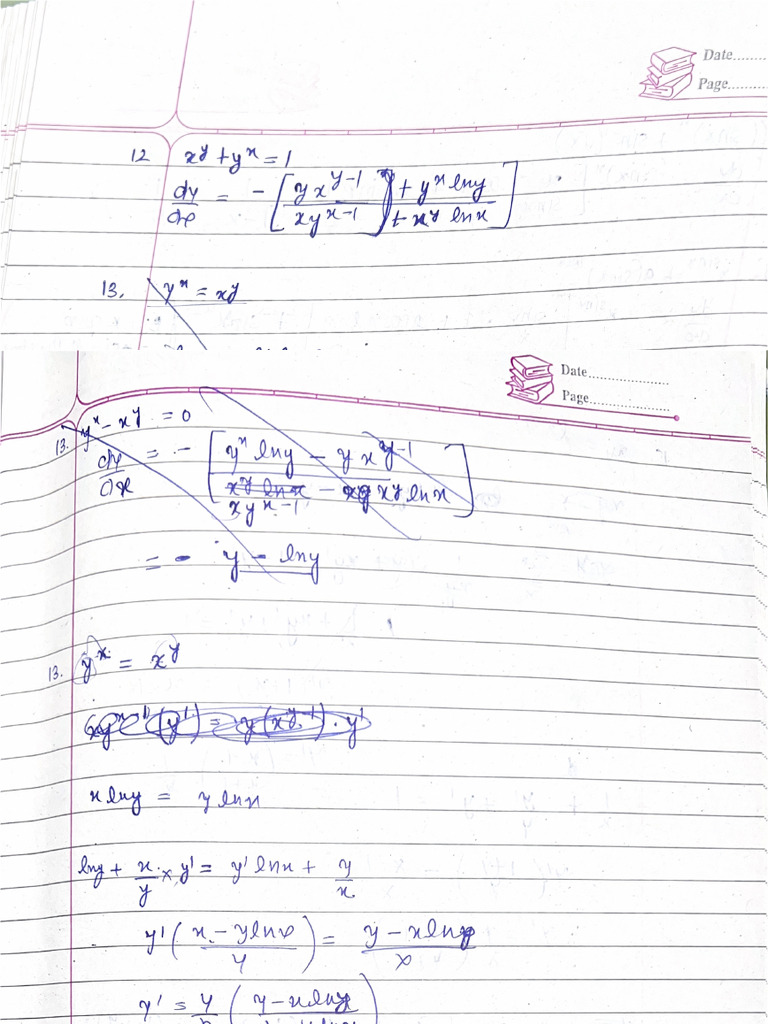 Date........
Page..........
12 x^y + y^x = 1
dy/dx = - [ (y x^{y-1} + y^x lny) / (x y^{x-1} + x^y lnx) ]
13. y^x = x^y
Date......................
Page......................
13. y^x - x^y = 0
dy/dx = - [ (y^x lny - y x^{y-1}) / (x y^{x-1} - x^y lnx) ]
= - y - lny
13. y^x = x^y
x lny = y lnx
lny + x/y × y' = y' lnx + y/x
y' ( (x - y lnx) / y ) = (y - x lny) / x
y' = y/x ( y - x lny